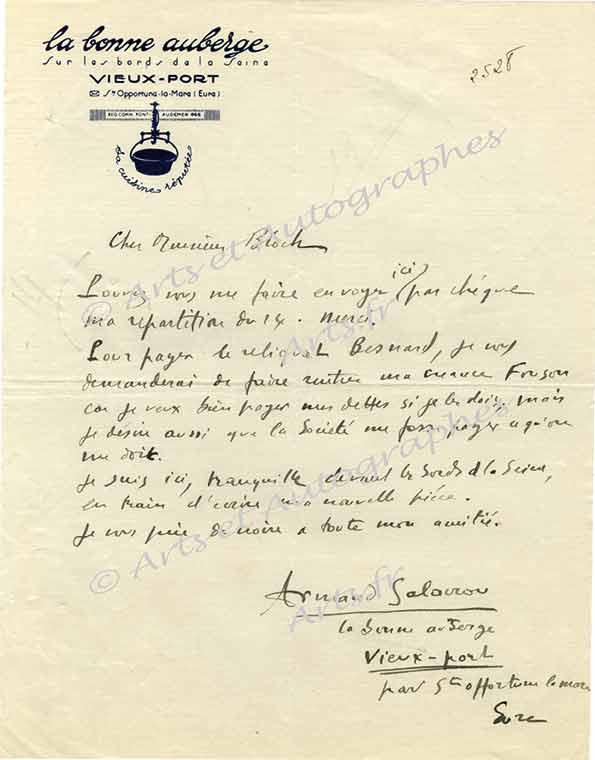 la bonne auberge
Sur les bords de la Seine
VIEUX-PORT
✉ Ste Opportune-la-Mare (Eure)
REG COMM PONT-AUDEMER 866
Sa cuisine réputée
2528
Cher Monsieur Bloch
Pouvez vous me faire envoyer ici, par chèque
ma répartition du 14. Merci.
Pour payer le reliquat Besnard, je vous
demanderai de faire rentrer ma créance
car je veux bien payer mes dettes si je les dois, mais
je désire aussi que la Société me fasse payer ce qu'on
me doit.
Je suis ici, tranquille devant les bords de la Seine,
en train d'écrire ma nouvelle pièce.
Je vous prie de croire à toute mon amitié.
Armand Salacrou
la bonne auberge
Vieux-port
par Ste opportune la mare
Eure
© Arts et Autographes
Arts.fr
© Arts et Autographes
Arts.fr